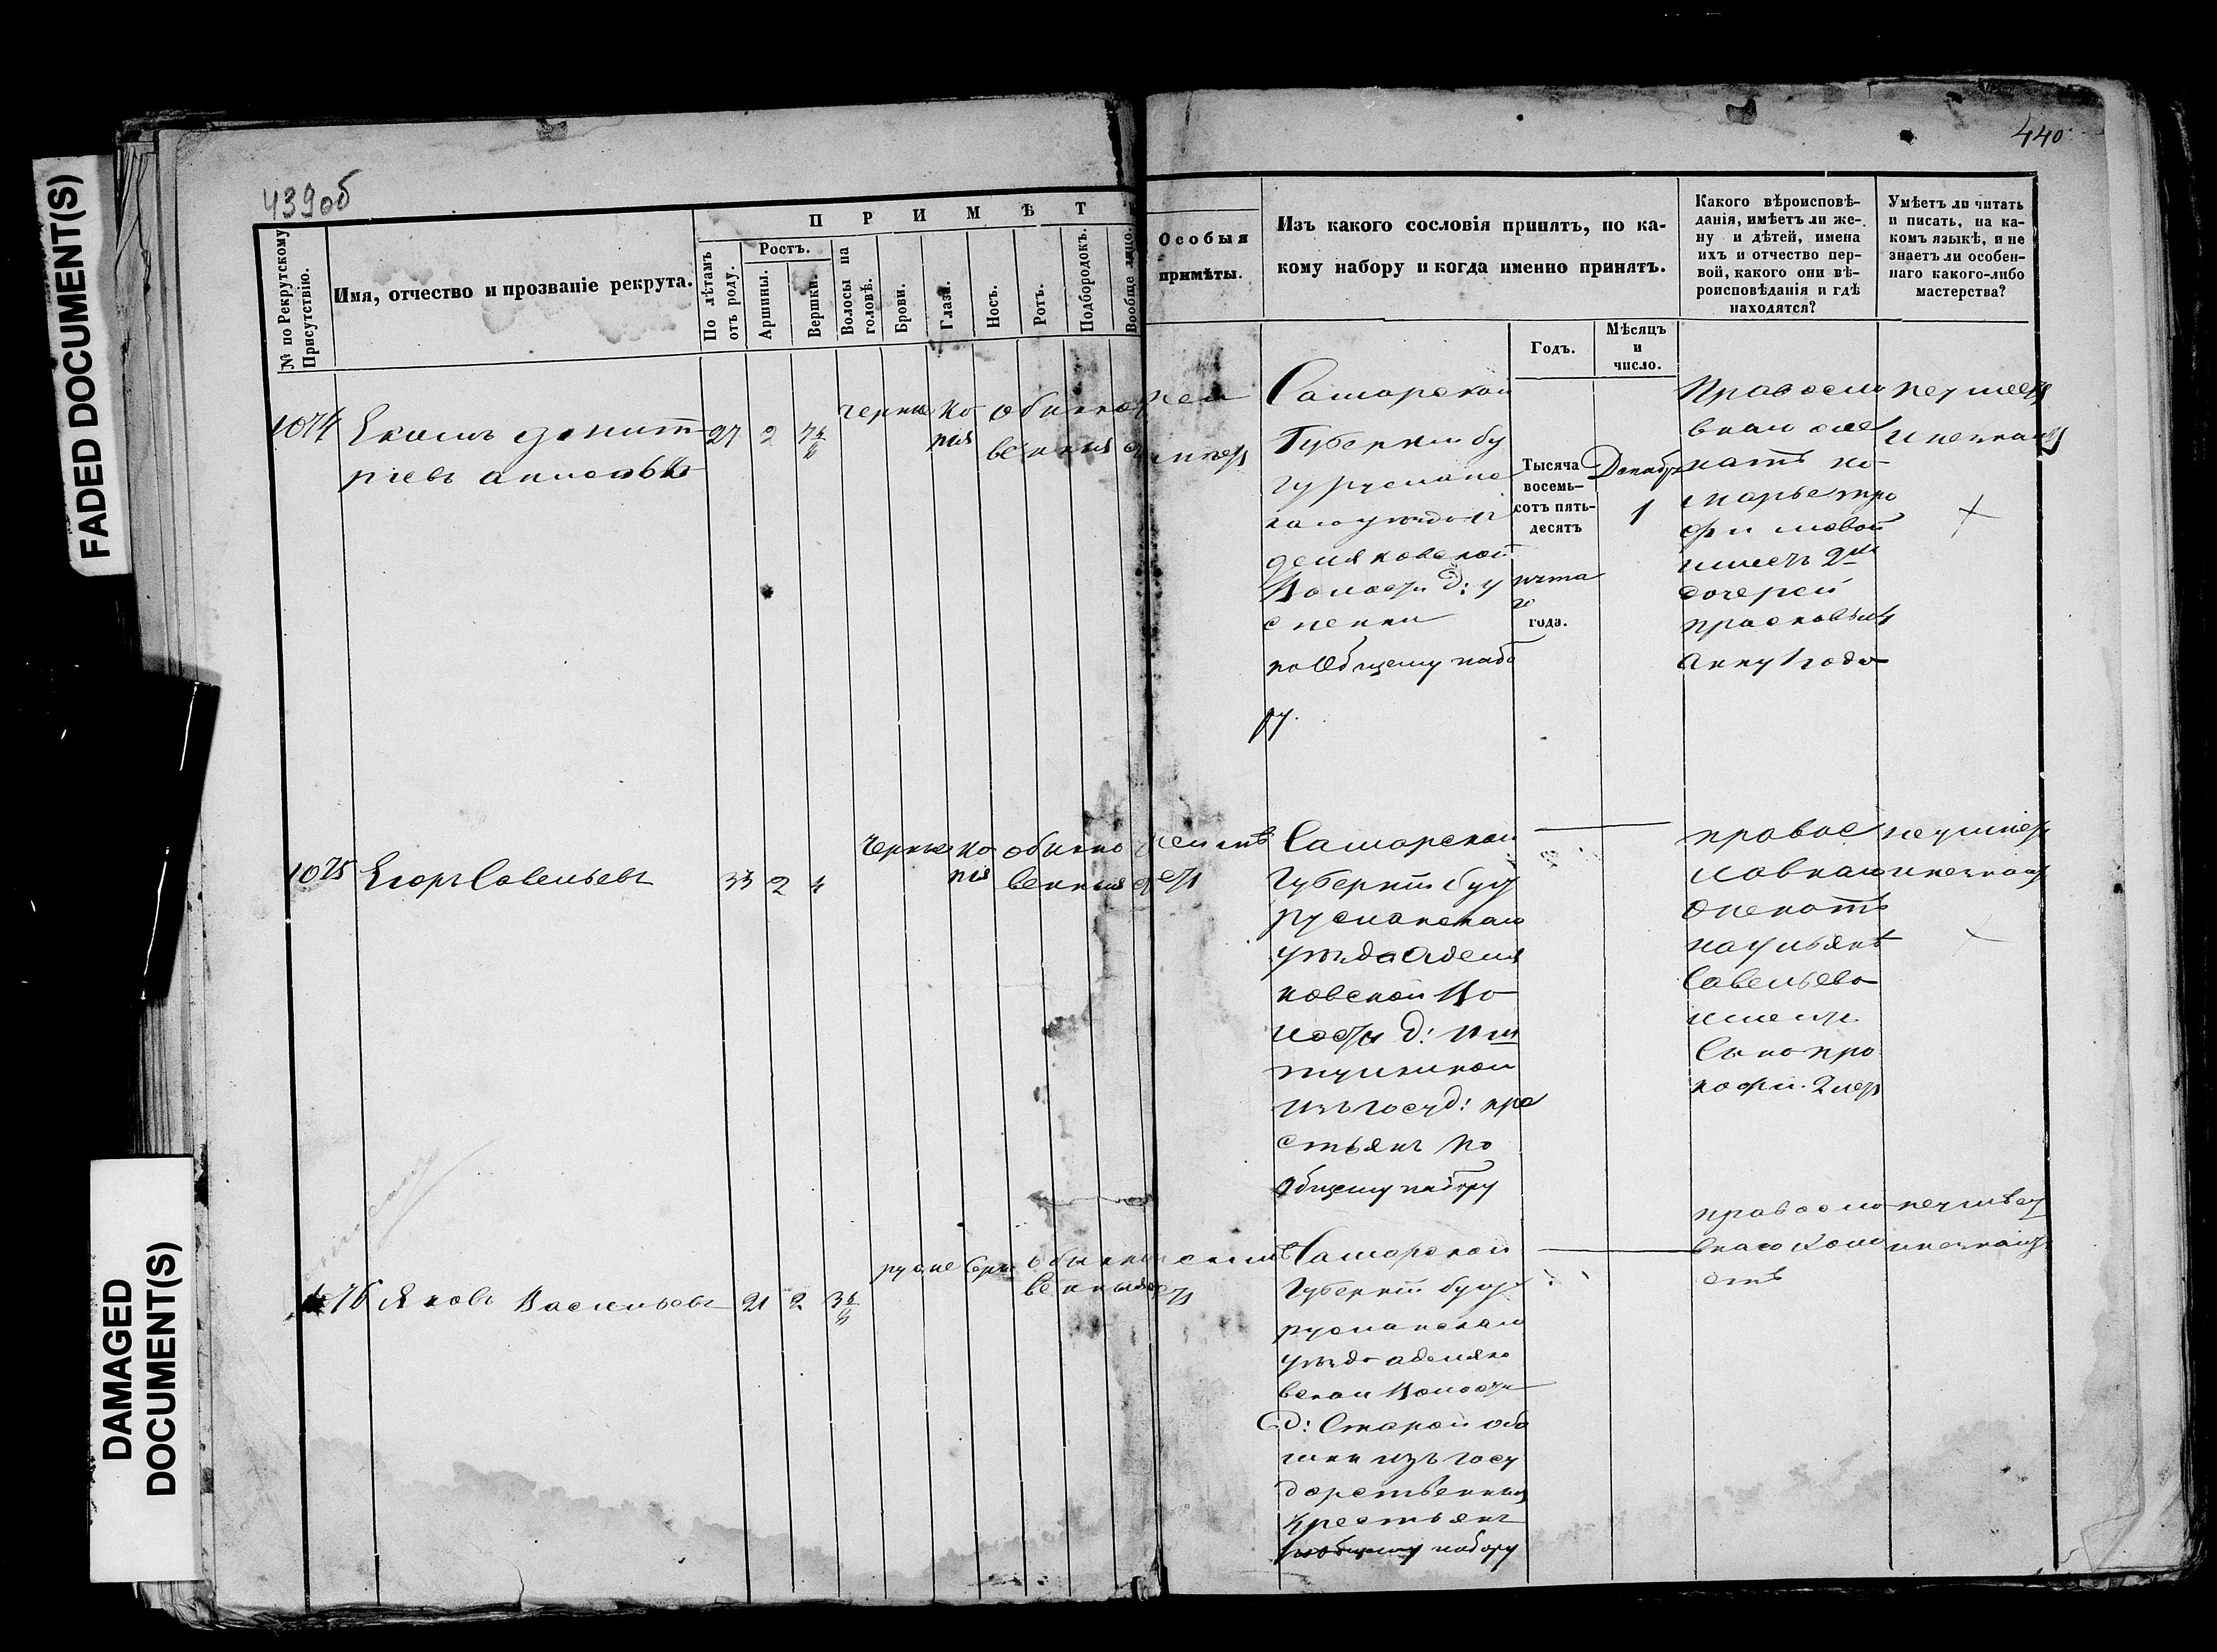 FADED DOCUMENT(S)
DAMAGED
DOCUMENT(S)
439об
440
№ по Рекрутскому
Присутствію.
Имя, отчество и прозваніе рекрута.
П Р И М Ѣ Т
По лѣтамъ
отъ роду.
Ростъ.
Аршины.
Вершки.
Волосы на
головѣ.
Брови.
Глаза.
Носъ.
Ротъ.
Подбородокъ.
Вообще лицо.
Особыя
примѣты.
Изъ какого сословія принятъ, по ка-
кому набору и когда именно принятъ.
Годъ.
Мѣсяцъ
и
число.
Какого вѣроисповѣ-
данія, имѣетъ ли же-
ну и дѣтей, имена
ихъ и отчество пер-
вой, какого они вѣ-
роисповѣданія и гдѣ
находятся?
Умѣетъ ли читать
и писать, на ка-
комъ языкѣ, и не
знаетъ ли особен-
наго какого-либо
мастерства?
1074
27 2
черные ка
рія
обыкно
венныя
Самарской
Губерніи бу
гурусланс
каго уѣзда
деляковской
Волости д: у
спенки
по Общему набо
ру.
Тысяча
восемь-
сотъ пять-
десятъ
пята
го
года.
Декабря
1
Правосла
внаго
женатъ на
марье тро
фимовой
имеетъ 2хъ
дочерей
прасковью
Анну 1 года
неумеетъ
и незнаетъ
1075 Егоръ Савельевъ
33 2 4
Черные ка
рія
обыкно
венныя
неимѣ
етъ
Самарской
Губерніи бугу
русланскаго
уѣзда Аделя
ковской Во
лости д:
изъ госуд: кре
стьянъ по
Общему набору
правос
лавнаго
женатъ
на ульянѣ
Савельева
имеетъ
Сына про
кофи. 2 летъ
неумѣетъ
и незнаетъ
76 Яковъ Васильевъ
21 2
русые серые обыкно
венныя
неимѣ
етъ
Самарской
Губерніи бугу
русланскаго
уѣзда аделяко
вской Волости
д: Старой
изъ госу
дарственныхъ
Крестьянъ
по общему набору
правосла
внаго холо
стъ
неумѣетъ
и незнаетъ